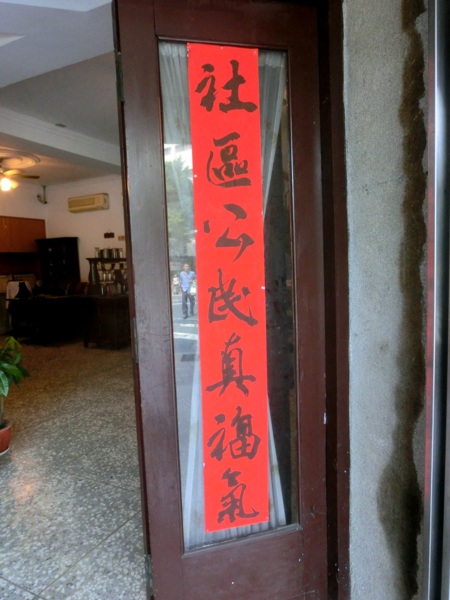 社區公民真福氣